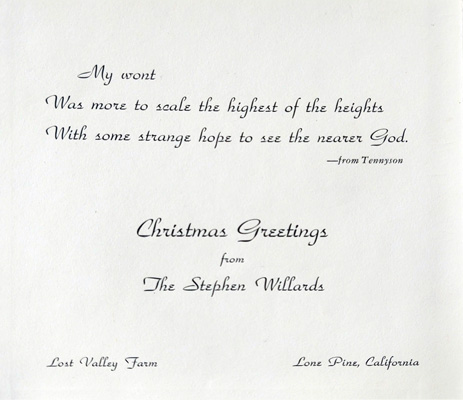 My wont
Was more to scale the highest of the heights
With some strange hope to see the nearer God.
—from Tennyson
Christmas Greetings
from
The Stephen Willards
Lost Valley Farm
Lone Pine, California